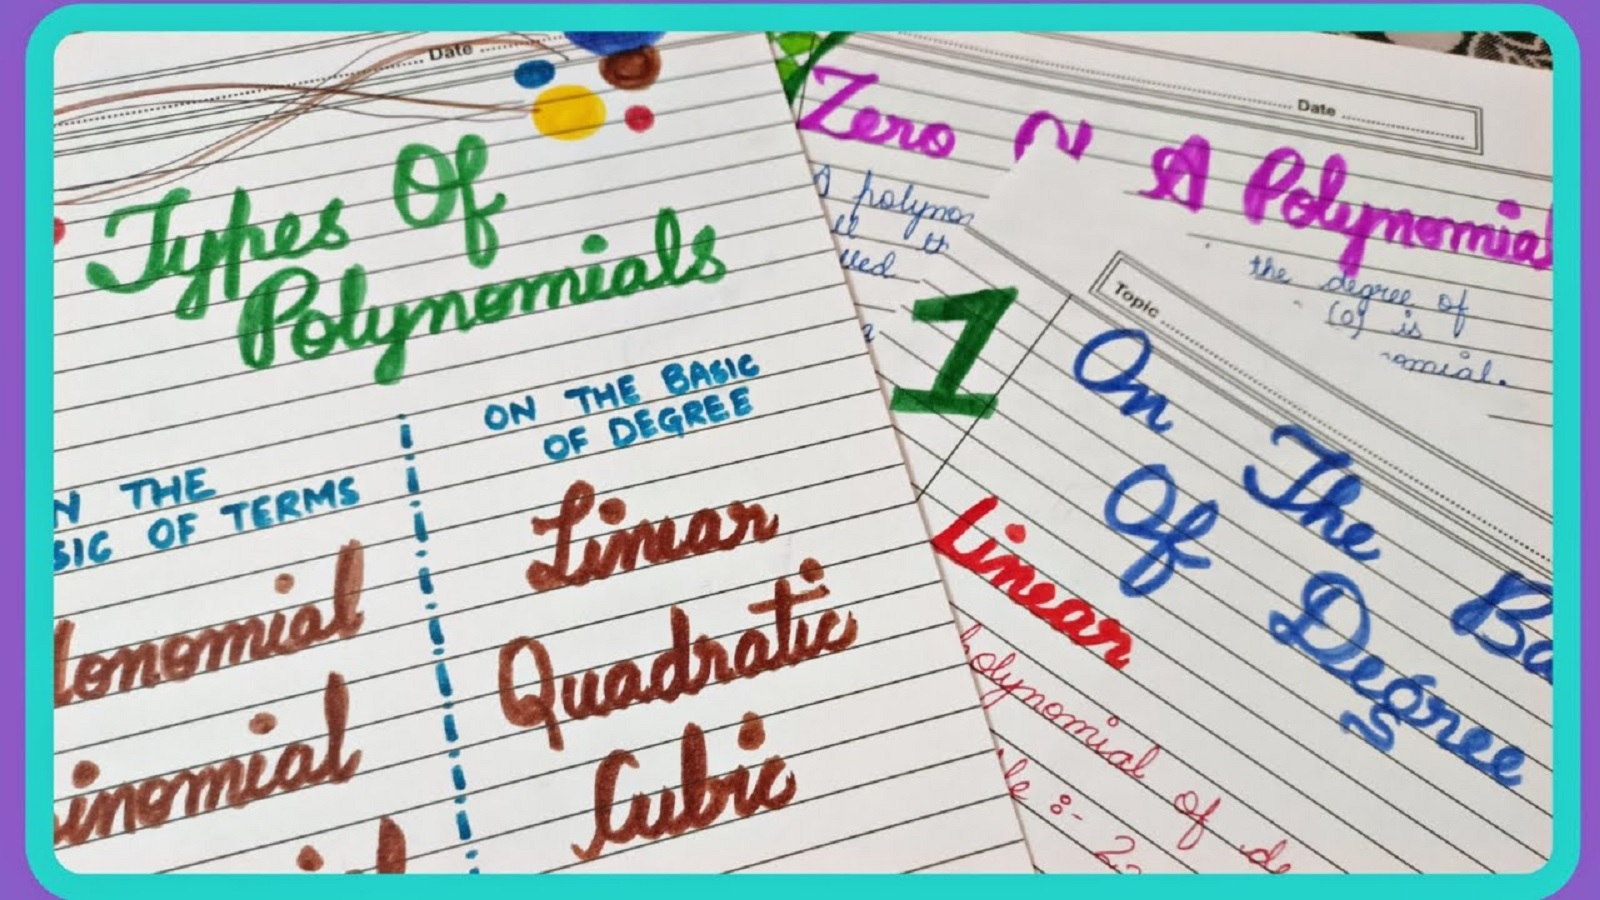 Date
Types Of
Polynomials
ON THE BASIC
OF DEGREE
N THE
SIC OF TERMS
Linear
Quadratic
Cubic
onomial
inomial
Date
Zero A Polynomial
A polyno
the degree of
(0) is
omial.
1
Topic
On The Ba
Of Degree
Linear
polynomial of de
le :- 2